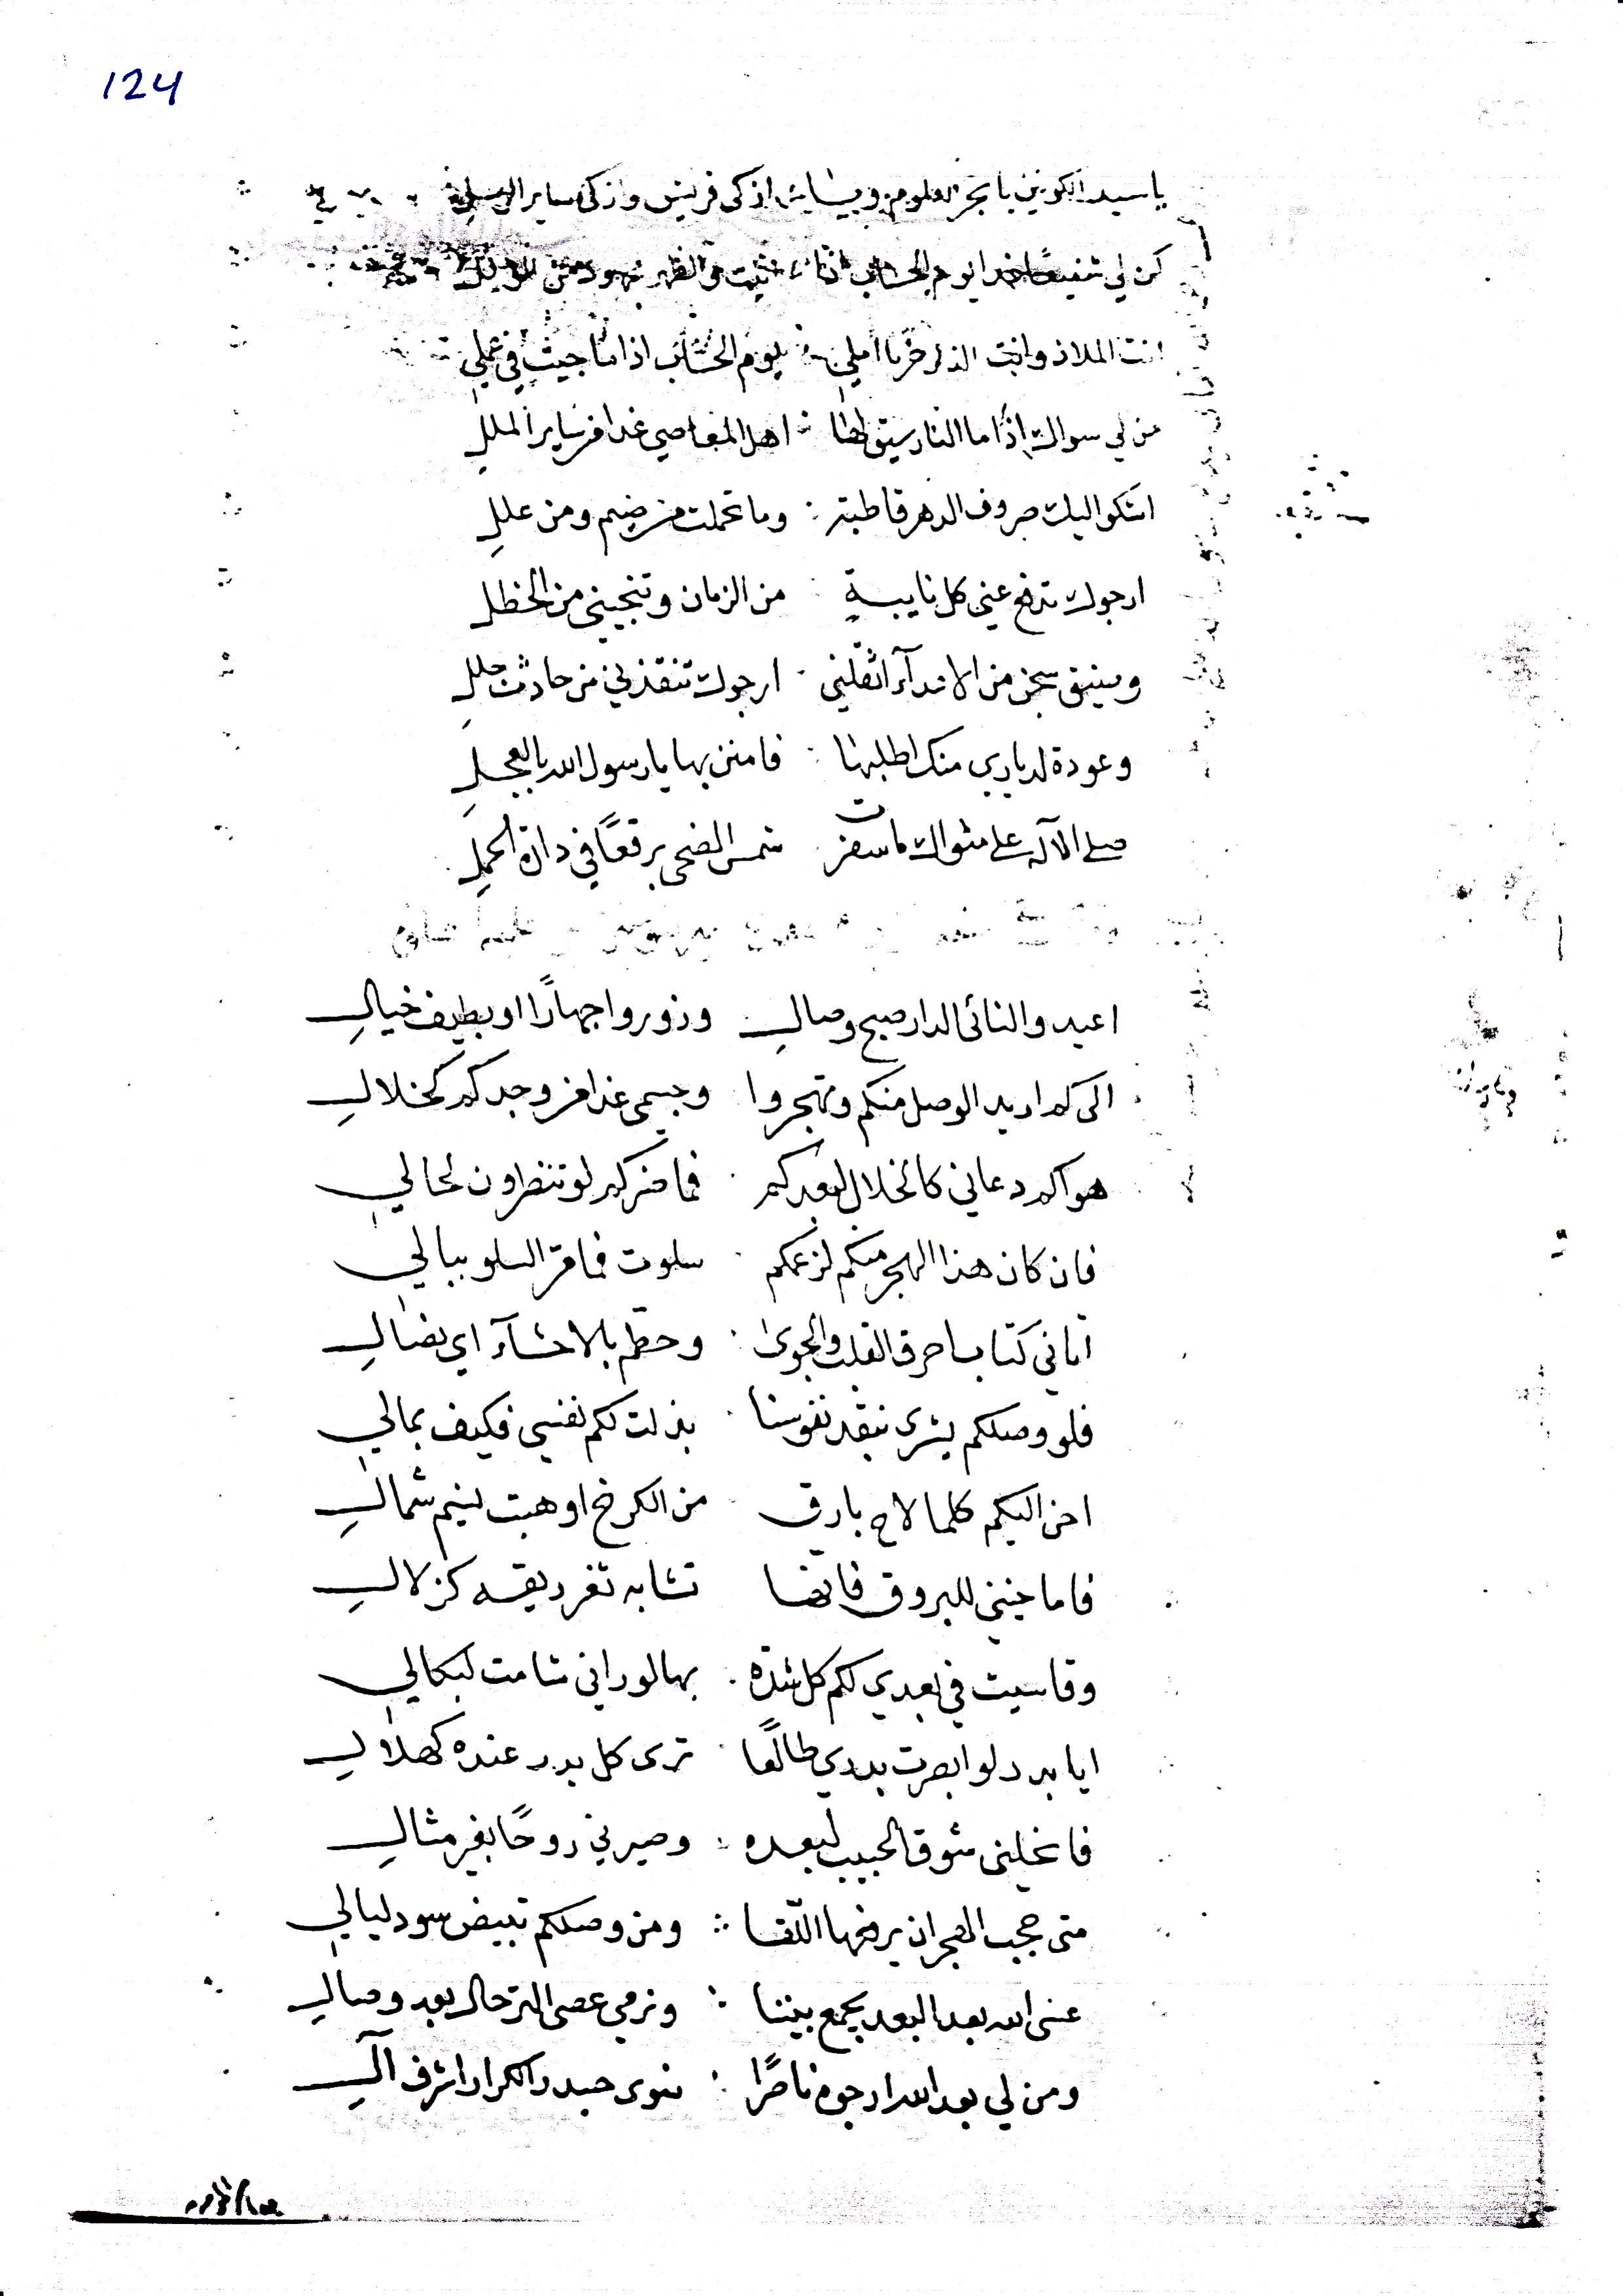 124
يا سيد الكونين يا بحر العلوم ويا ازكى قريش وازكى ساير الرسل
كن لي شفيعا غدا يوم الحساب اذا
انت الملاذ وانت الذخر يا املي يوم الحساب اذا ما جيت في عملي
من لي سواك اذا ما النار سيق لها اهل المعاصي غدا من ساير الملل
اشكو اليك صروف الدهر قاطبة وما تحملت من ضيم ومن علل
ارجوك تدفع عني كل نايبةٍ من الزمان وتنجيني من الخطل
وضيق سجن من الاعدآء اثقلني ارجوك تنقذني من حادث جلل
وعودة لدياري منك اطلبها فامنن بها يا رسول الله بالعجل
صلى الاله على مثواك ما سفرت شمس الضحى برقعًا في دارة الحمل
اعيدوا لنائى الدار صبح وصال وزوروا جهارًا او بطيف خيال
الى كم اريد الوصل منكم وتهجروا وجسمى غدا من وجدكم كخلال
هواكم دعاني كالخلال لبعدكم فما ضركم لو تنظرون لحالي
فان كان هذا الهجر منكم لزعمكم سلوت فما مرّ السلو ببالي
اتاني كتاب احرق القلب والجوى وحطم بالاحشآء اي نصال
فلو وصلكم يشرى بنقد نفوسنا بذلت لكم نفسي فكيف بمالي
احن اليكم كلما لاح بارق من الكرخ او هبت نسيم شمال
فاما حنيني للبروق فانها تشابه ثغر ريقه كزلال
وقاسيت في بعدي لكم كل شدة بها لو رانى شامت لبكالي
ايا بدر لو ابصرت بدري طالعًا ترى كل بدر عنده كهلال
فانحلنى شوق الحبيب لبعده وصيرني روحًا بغير مثال
متى حجب الهجران يرفعها اللّقا ومن وصلكم تبيض سود ليالي
عسى الله بعد البعد يجمع بيننا ونرمي عصى الترحال بعد وصال
ومن لي بعد الله ارجوه ناصرًا سوى حيدر الكرار اشرف آل